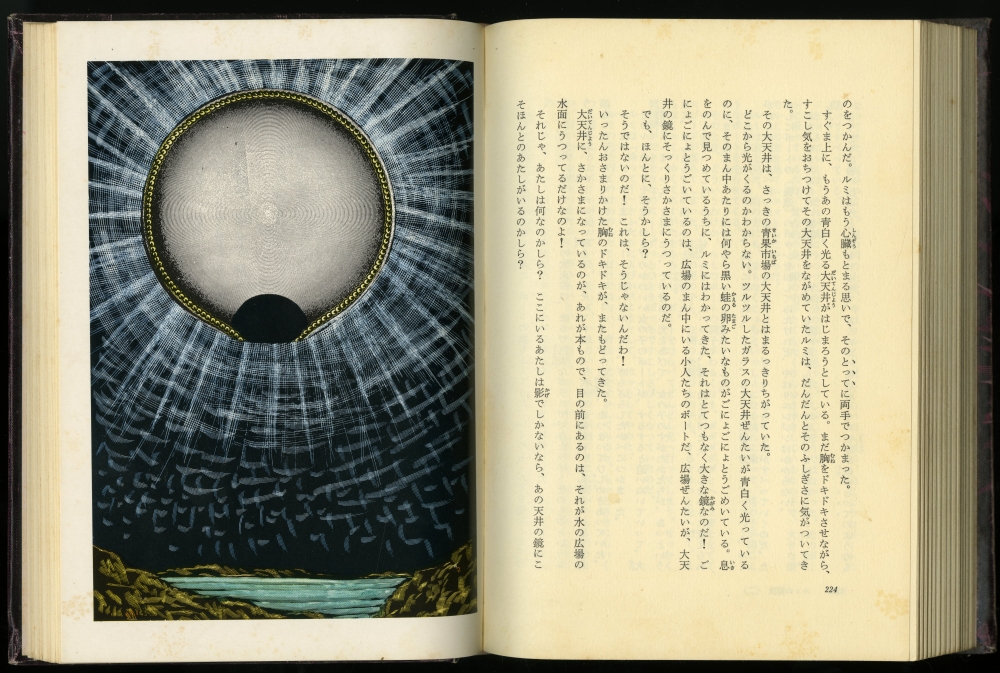 のをつかんだ。ルミはもう心臓もとまる思いで、そのとってに両手でつかまった。
すぐま上に、もうあの青白く光る大天井がはじまろうとしている。まだ胸をドキドキさせながら、
すこし気をおちつけてその大天井をながめていたルミは、だんだんとそのふしぎさに気がついてき
た。
その大天井は、さっきの青果市場の大天井とはまるっきりちがっていた。
どこから光がくるのかわからない。ツルツルしたガラスの大天井ぜんたいが青白く光っている
のに、そのまん中あたりには何やら黒い蛙の卵みたいなものがごにょごにょとうごめいている。息
をのんで見つめているうちに、ルミにはわかってきた、それはとてつもなく大きな鏡なのだ！　ご
にょごにょとうごいているのは、広場のまん中にいる小人たちのボートだ、広場ぜんたいが、大天
井の鏡にそっくりさかさまにうつっているのだ。
でも、ほんとに、そうかしら？
そうではないのだ！　これは、そうじゃないんだわ！
いったんおさまりかけた胸のドキドキが、またもどってきた。
大天井に、さかさまになっているのが、あれが本もので、目の前にあるのは、それが水の広場の
水面にうつってるだけなのよ！
それじゃ、あたしは何なのかしら？　ここにいるあたしは影でしかないなら、あの天井の鏡にこ
そほんとのあたしがいるのかしら？
224